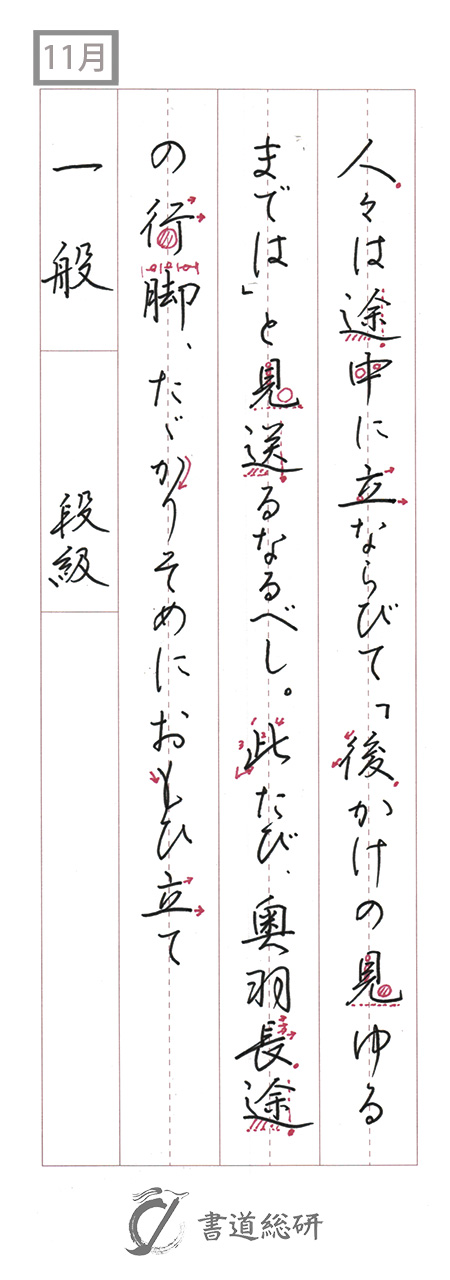 11月
人々は途中に立ならびて「後かけの見ゆる
までは」と見送るなるべし。此たび、奥羽長途
の行脚、たゞかりそめにおもひ立て
一般
段級
書道総研